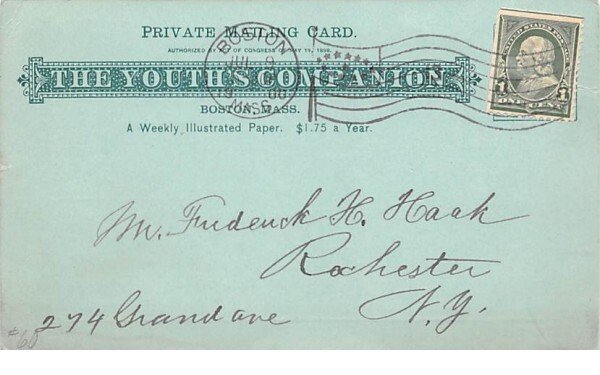 PRIVATE MAILING CARD.
AUTHORIZED BY ACT OF CONGRESS OF MAY 19, 1898.
THE YOUTH'S COMPANION
BOSTON, MASS.
A Weekly Illustrated Paper. $1.75 a Year.
BOSTON
JUL 9
MASS.
UNITED STATES
1 1
ONE CENT
Mr. Frederick H. Haak
Rochester
N.Y.
274 Grand ave
#60